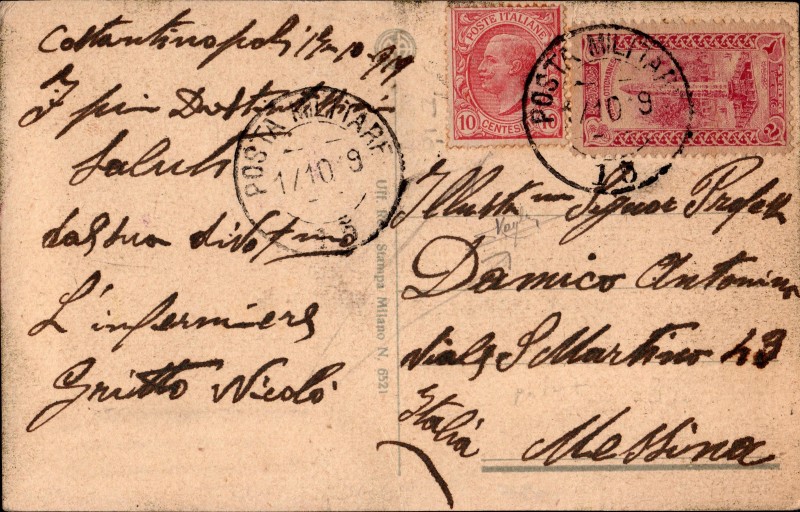 Costantinopoli 17-10-919
I più Distinti
Saluti
dal suo divotmo
L'infermiere
Gritto Nicolò
POSTE ITALIANE
10 CENTESIMI 10
POSTA MILITARE
17 10 9
15
POSTA MILITARE
17/10 9
Uff. Rev. Stampa Milano N. 6521
Illustrmo Signor Profess
Damico Antonino
Viale S Martino 43
Italia
Messina